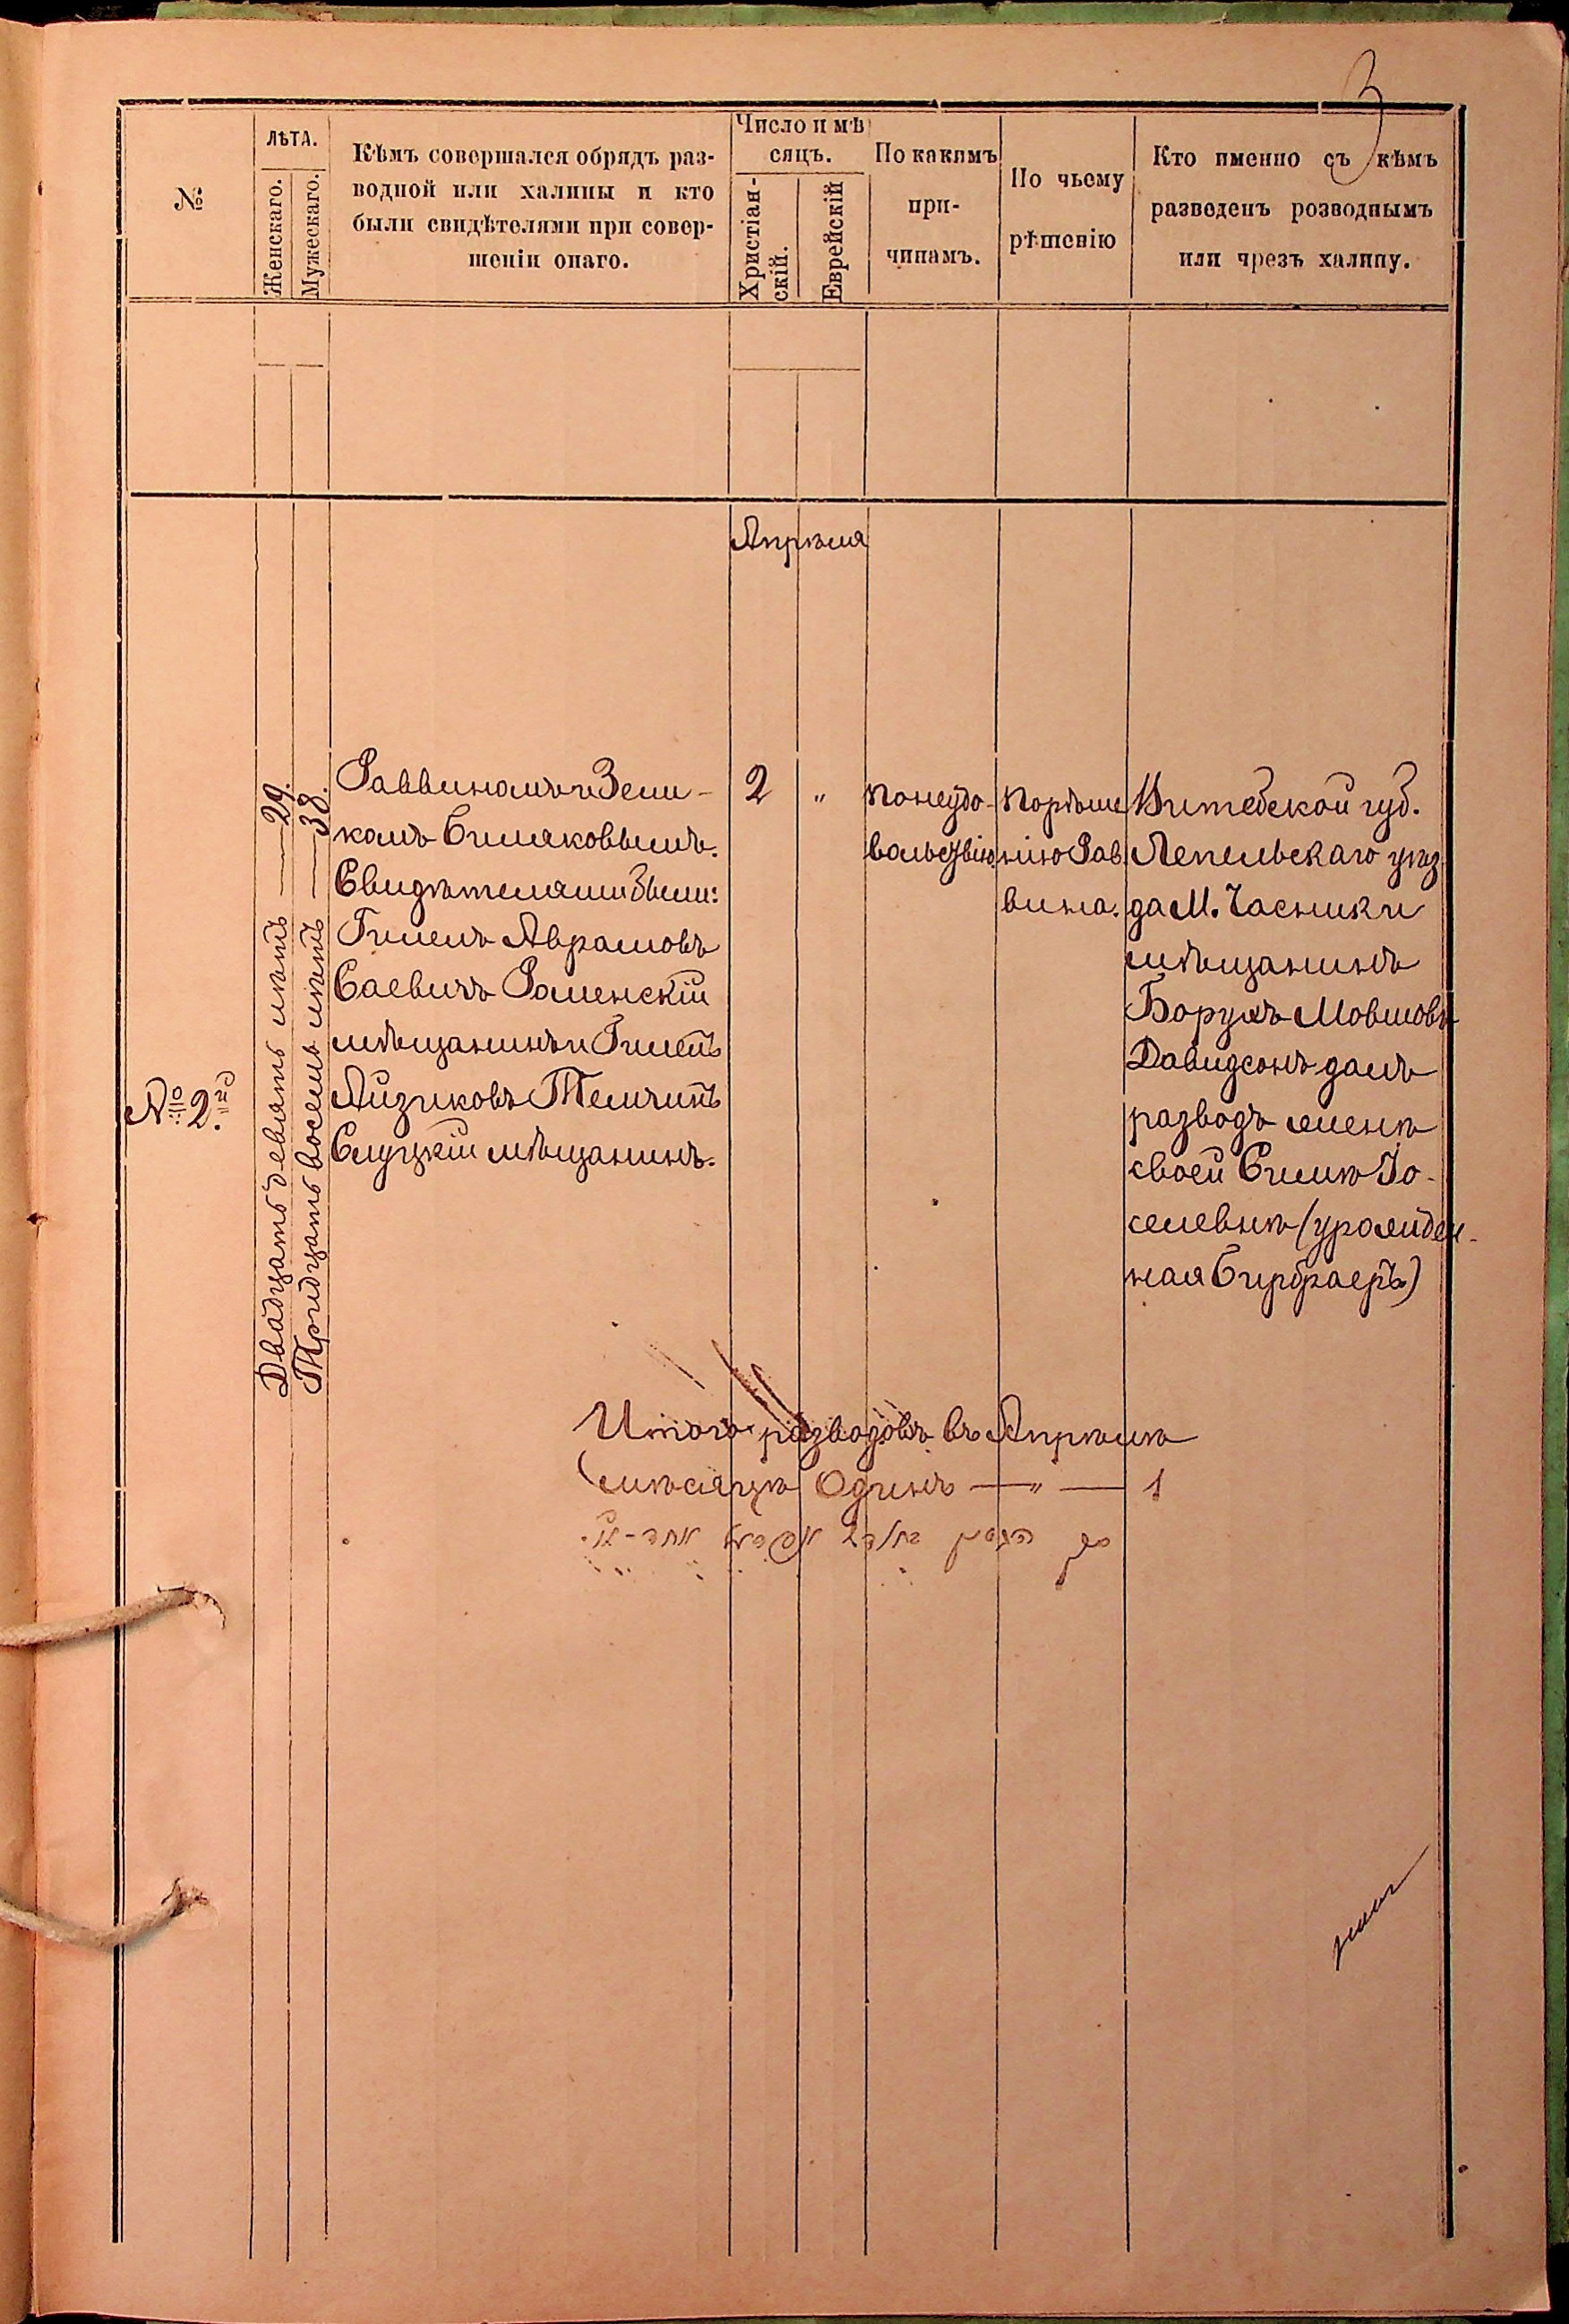 3
№
ЛѢТА.
Женскаго.
Мужескаго.
Кѣмъ совершался обрядъ раз-
водной или халицы и кто
были свидѣтелями при совер-
шеніи онаго.
Число и мѣ
сяцъ.
Христіан-
скій.
Еврейскій
По какимъ
при-
чинамъ.
По чьему
рѣшенію
Кто именно съ кѣмъ
разведенъ розводнымъ
или чрезъ халицу.
Апрѣля
№ 2й
Двадцать девять лѣтъ — 29.
Тридцать восемь лѣтъ — 38.
Раввиномъ Зели-
комъ Симяковымъ.
Свидѣтелями были:
Гилель Аврамовъ
Саевичъ Роменскій
мѣщанинъ и Гилель
Айзиковъ Темчинъ
Слуцкій мѣщанинъ.
2
"
По неудо-
вольствію.
По рѣше
нію Рав
вина.
Витебской губ.
Лепельскаго уѣз
да М. Часники
мѣщанинъ
Борухъ Мовшовъ
Давидсонъ далъ
разводъ женѣ
своей Симѣ Іо-
селевнѣ (урожден-
ная Бирбраеръ)
Итого разводовъ въ Апрѣлѣ
мѣсяцѣ Одинъ — " — 1